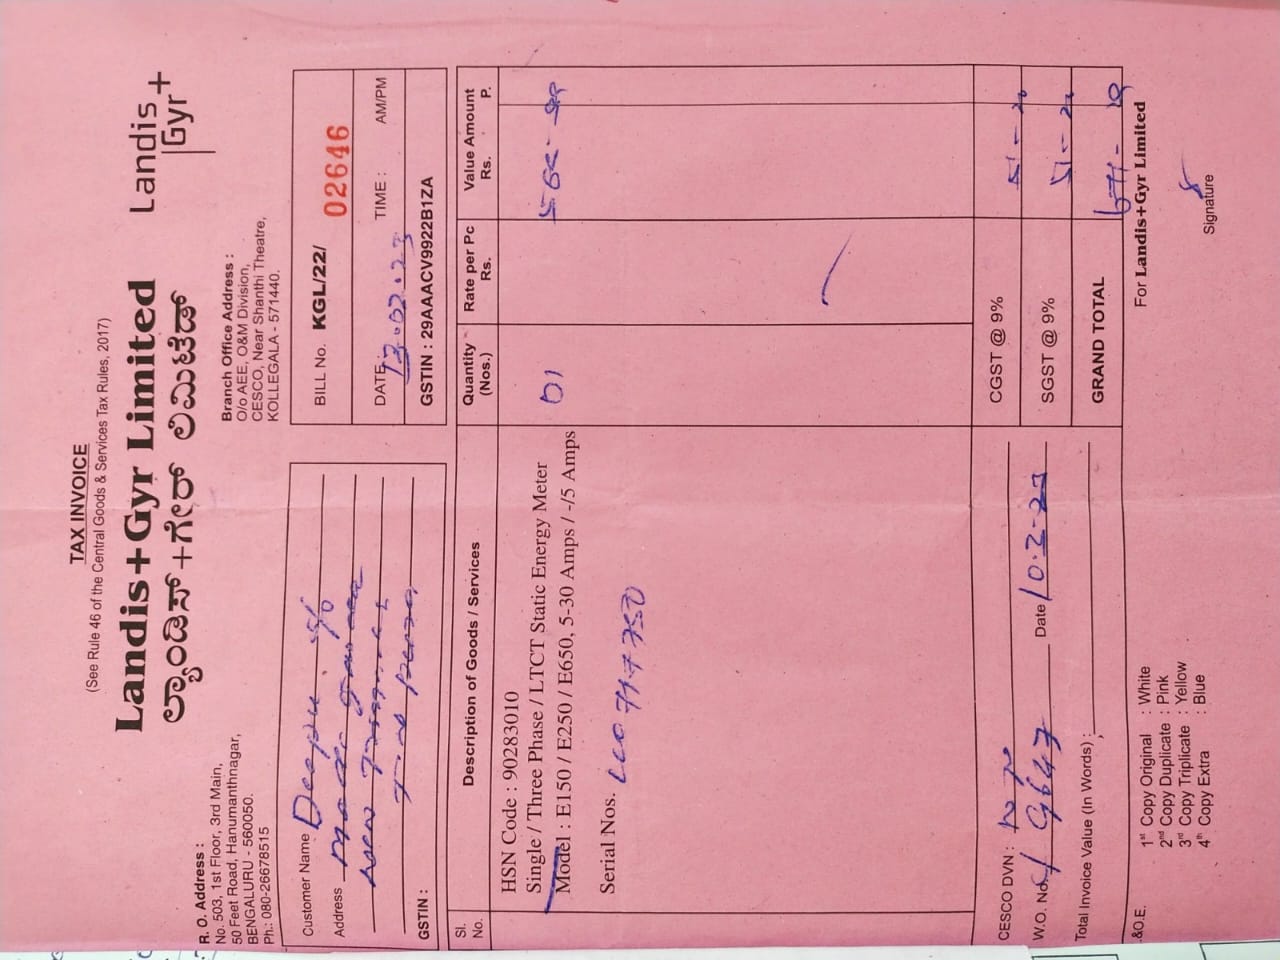 TAX INVOICE
(See Rule 46 of the Central Goods & Services Tax Rules, 2017)
Landis+Gyr Limited
ಲ್ಯಾಂಡಿಸ್+ಗೇರ್ ಲಿಮಿಟೆಡ್
Landis
Gyr+
R. O. Address :
No. 503, 1st Floor, 3rd Main,
50 Feet Road, Hanumanthnagar,
BENGALURU - 560050.
Ph.: 080-26678515
Branch Office Address :
O/o AEE, O&M Division,
CESCO, Near Shanthi Theatre,
KOLLEGALA - 571440.
Customer Name : Deepu
Address
GSTIN :
BILL No. KGL/22/ 02646
DATE 13.02.23 TIME : AM/PM
GSTIN : 29AAACV9922B1ZA
Sl. No. Description of Goods / Services Quantity (Nos.) Rate per Pc Rs. Value Amount Rs. P.
HSN Code : 90283010
Single / Three Phase / LTCT Static Energy Meter 01
Model : E150 / E250 / E650, 5-30 Amps / -/5 Amps
Serial Nos.
CESCO DVN : CGST @ 9%
W.O. No. Date 10.2.23 SGST @ 9%
Total Invoice Value (In Words) : GRAND TOTAL
.&O.E.
1st Copy Original : White
2nd Copy Duplicate : Pink
3rd Copy Triplicate : Yellow
4th Copy Extra : Blue
For Landis+Gyr Limited
Signature